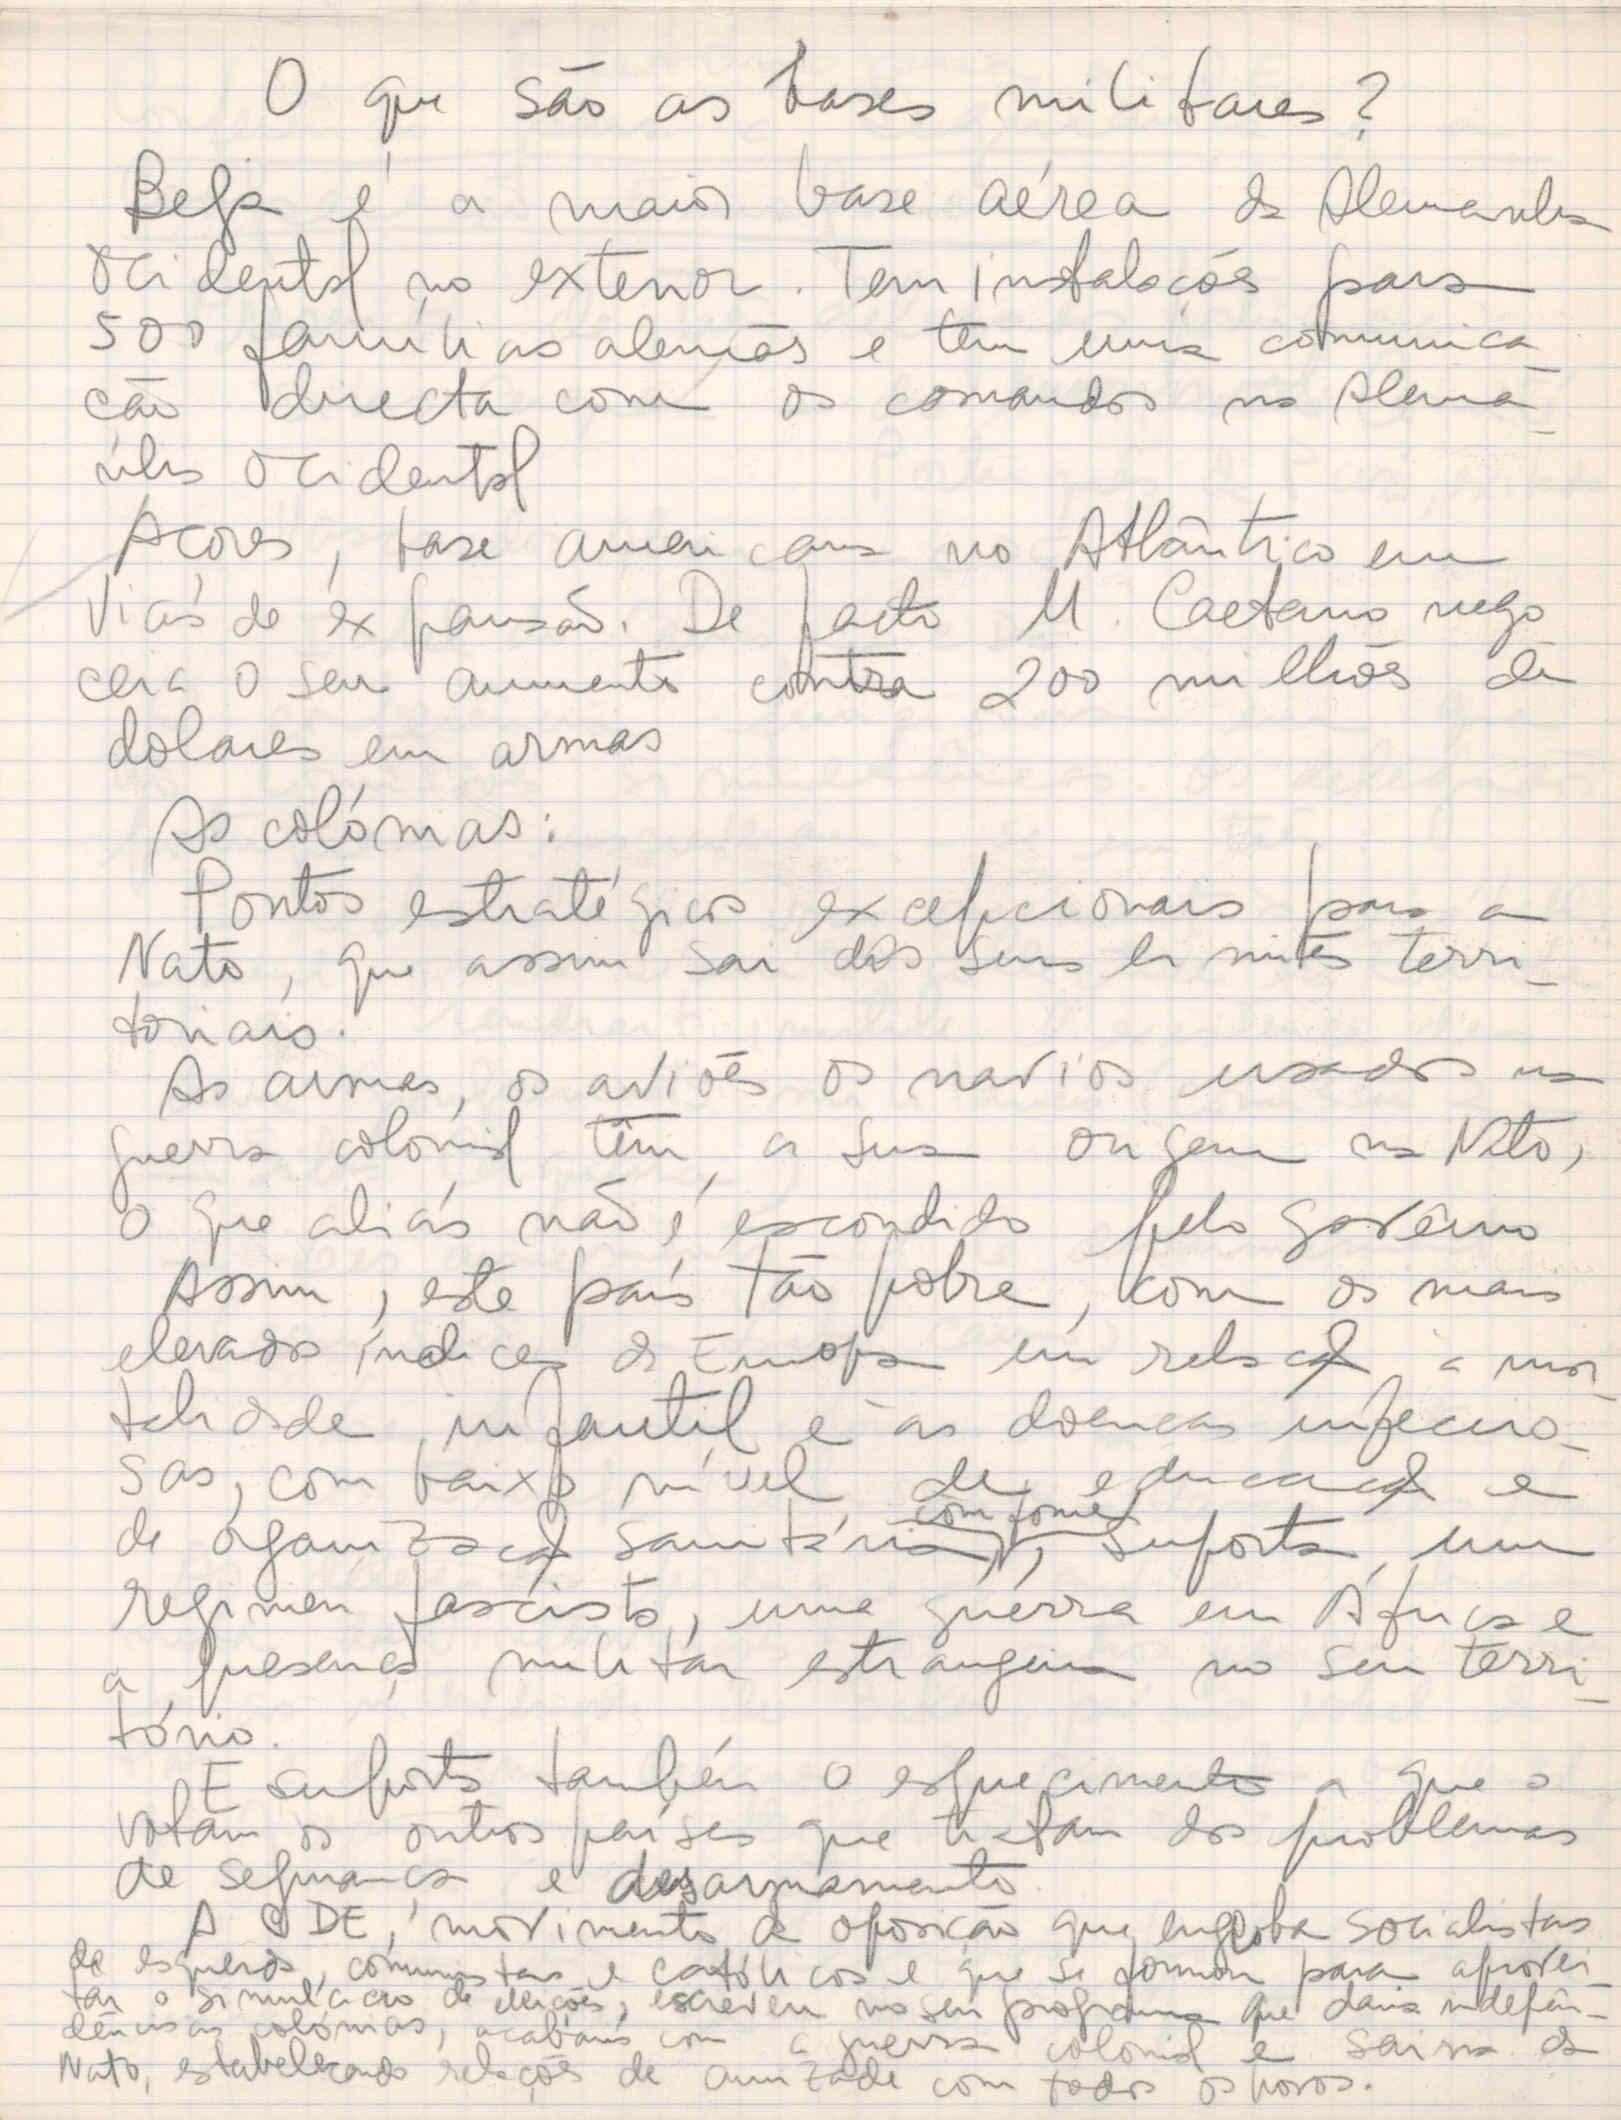 O que são as bases militares?
Beja é a maior base aérea da Alemanha
Ocidental no exterior. Tem instalações para
500 famílias alemãs e tem uma comunica
ção directa com os comandos na Alema-
nha Ocidental
Açores, base americana no Atlântico em
vias de expansão. De facto M. Caetano nego
ceia o seu aumento contra 200 milhões de
dolares em armas
As colónias:
Pontos estratégicos excepcionais para a
Nato, que assim sai dos seus limites terri-
toriais.
As armas, os aviões os navios usados na
guerra colonial têm a sua origem na Nato,
o que aliás não é escondido pelo govêrno
Assim, este país tão pobre, com os mais
elevados índices da Europa em relação à mor-
talidade infantil e às doenças infeccio-
sas, com baixo nível de educação e
de organização sanitária, com fome, suporta um
regimen fascista, uma guerra em África e
a presença militar estrangeira no seu terri-
tório.
E suporta também o esquecimento a que o
votam os outros países que tratam dos problemas
de segurança e desarmamento.
A CDE, movimento de oposição que engloba socialistas
de esquerda, comunistas e católicos e que se formou para aprovei-
tar o simulacro de eleições, escreveu no seu programa que daria indepen-
dência às colónias, acabaria com a guerra colonial e sairia da
Nato, estabelecendo relações de amizade com todos os povos.